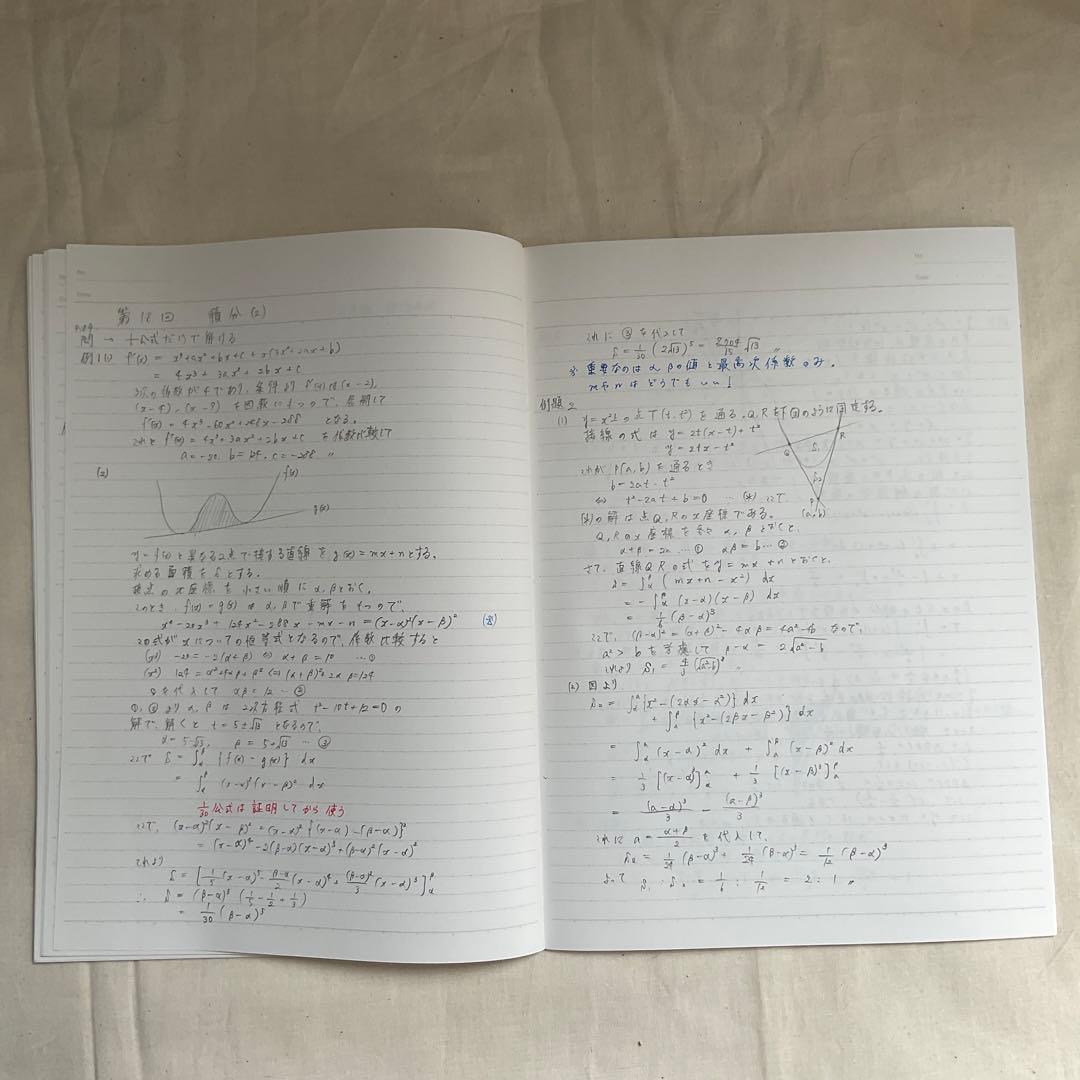 第18回 積分(2)
P.89
問 → 1/6公式だけで解ける
例1(1) f'(x) = x³+ax²+bx+c + x(3x²+2ax+b)
= 4x³+3ax²+2bx+c
3次の係数が4であり、条件より f'(x)は(x-2),
(x-4), (x-9)を因数にもつので、展開して
f'(x) = 4x³-60x²+248x-288 となる。
これと f'(x) = 4x³+3ax²+2bx+c を係数比較して
a=-20, b=124, c=-288 〃
(2)
f(x)
g(x)
y=f(x)と異なる2点で接する直線をg(x)=mx+nとする。
求める面積をSとする。
接点のx座標を小さい順にα,βとおく。
このとき、f(x)=g(x)はα,βで重解をもつので、
x⁴-20x³+124x²-288x-mx-n=(x-α)²(x-β)²
この式がxについての恒等式となるので、係数比較すると
(x³) -20=-2(α+β) ⇔ α+β=10 …①
(x²) 124=α²+4αβ+β² ⇔ (α+β)²+2αβ=124
①を代入して αβ=12 …②
①,②よりα,βは2次方程式 t²-10t+12=0の
解で、解くと t=5±√13 となるので、
α=5-√13, β=5+√13 …③
ここで S=∫_α^β {f(x)-g(x)} dx
=∫_α^β (x-α)²(x-β)² dx
1/30公式は証明してから使う
ここで、(x-α)²(x-β)²=(x-α)²{(x-α)-(β-α)}²
=(x-α)⁴-2(β-α)(x-α)³+(β-α)²(x-α)²
これより
S=[1/5(x-α)⁵-(β-α)/2(x-α)⁴+(β-α)²/3(x-α)³]_α^β
∴ S=(β-α)⁵(1/5-1/2+1/3)
=1/30(β-α)⁵
これに③を代入して
S=1/30(2√13)⁵=2704/15√13 〃
※ 重要なのはα,βの値と最高次係数のみ。
mやnはどうでもいい!
例題2
(1) y=x²上の点T(t,t²)を通る。Q,Rを下図のように固定する。
接線の式は y=2t(x-t)+t²
y=2tx-t²
これがP(a,b)を通るとき
b=2at-t²
⇔ t²-2at+b=0 …(※) ここで
(※)の解は点Q,Rのx座標である。
Q,Rのx座標を各々α,βとおくと、
α+β=2a …① αβ=b …②
さて、直線QRの式をy=mx+nとおくと、
S=∫_α^β (mx+n-x²) dx
=-∫_α^β (x-α)(x-β) dx
=1/6(β-α)³
ここで、(β-α)²=(α+β)²-4αβ=4a²-4b なので、
a²>bを考慮して β-α=2√(a²-b)
これより S₁=4/3(√(a²-b))³ 〃
Q
R
S₁
S₂
P
(a,b)
(2) 図より
S₂=∫_α^a {x²-(2αx-α²)} dx
+∫_a^β {x²-(2βx-β²)} dx
=∫_α^a (x-α)² dx+∫_a^β (x-β)² dx
=1/3[(x-α)³]_α^a+1/3[(x-β)³]_a^β
=(a-α)³/3-(a-β)³/3
これに a=(α+β)/2 を代入して、
S₂=1/24(β-α)³+1/24(β-α)³=1/12(β-α)³
よって S₁:S₂=1/6:1/12=2:1 〃